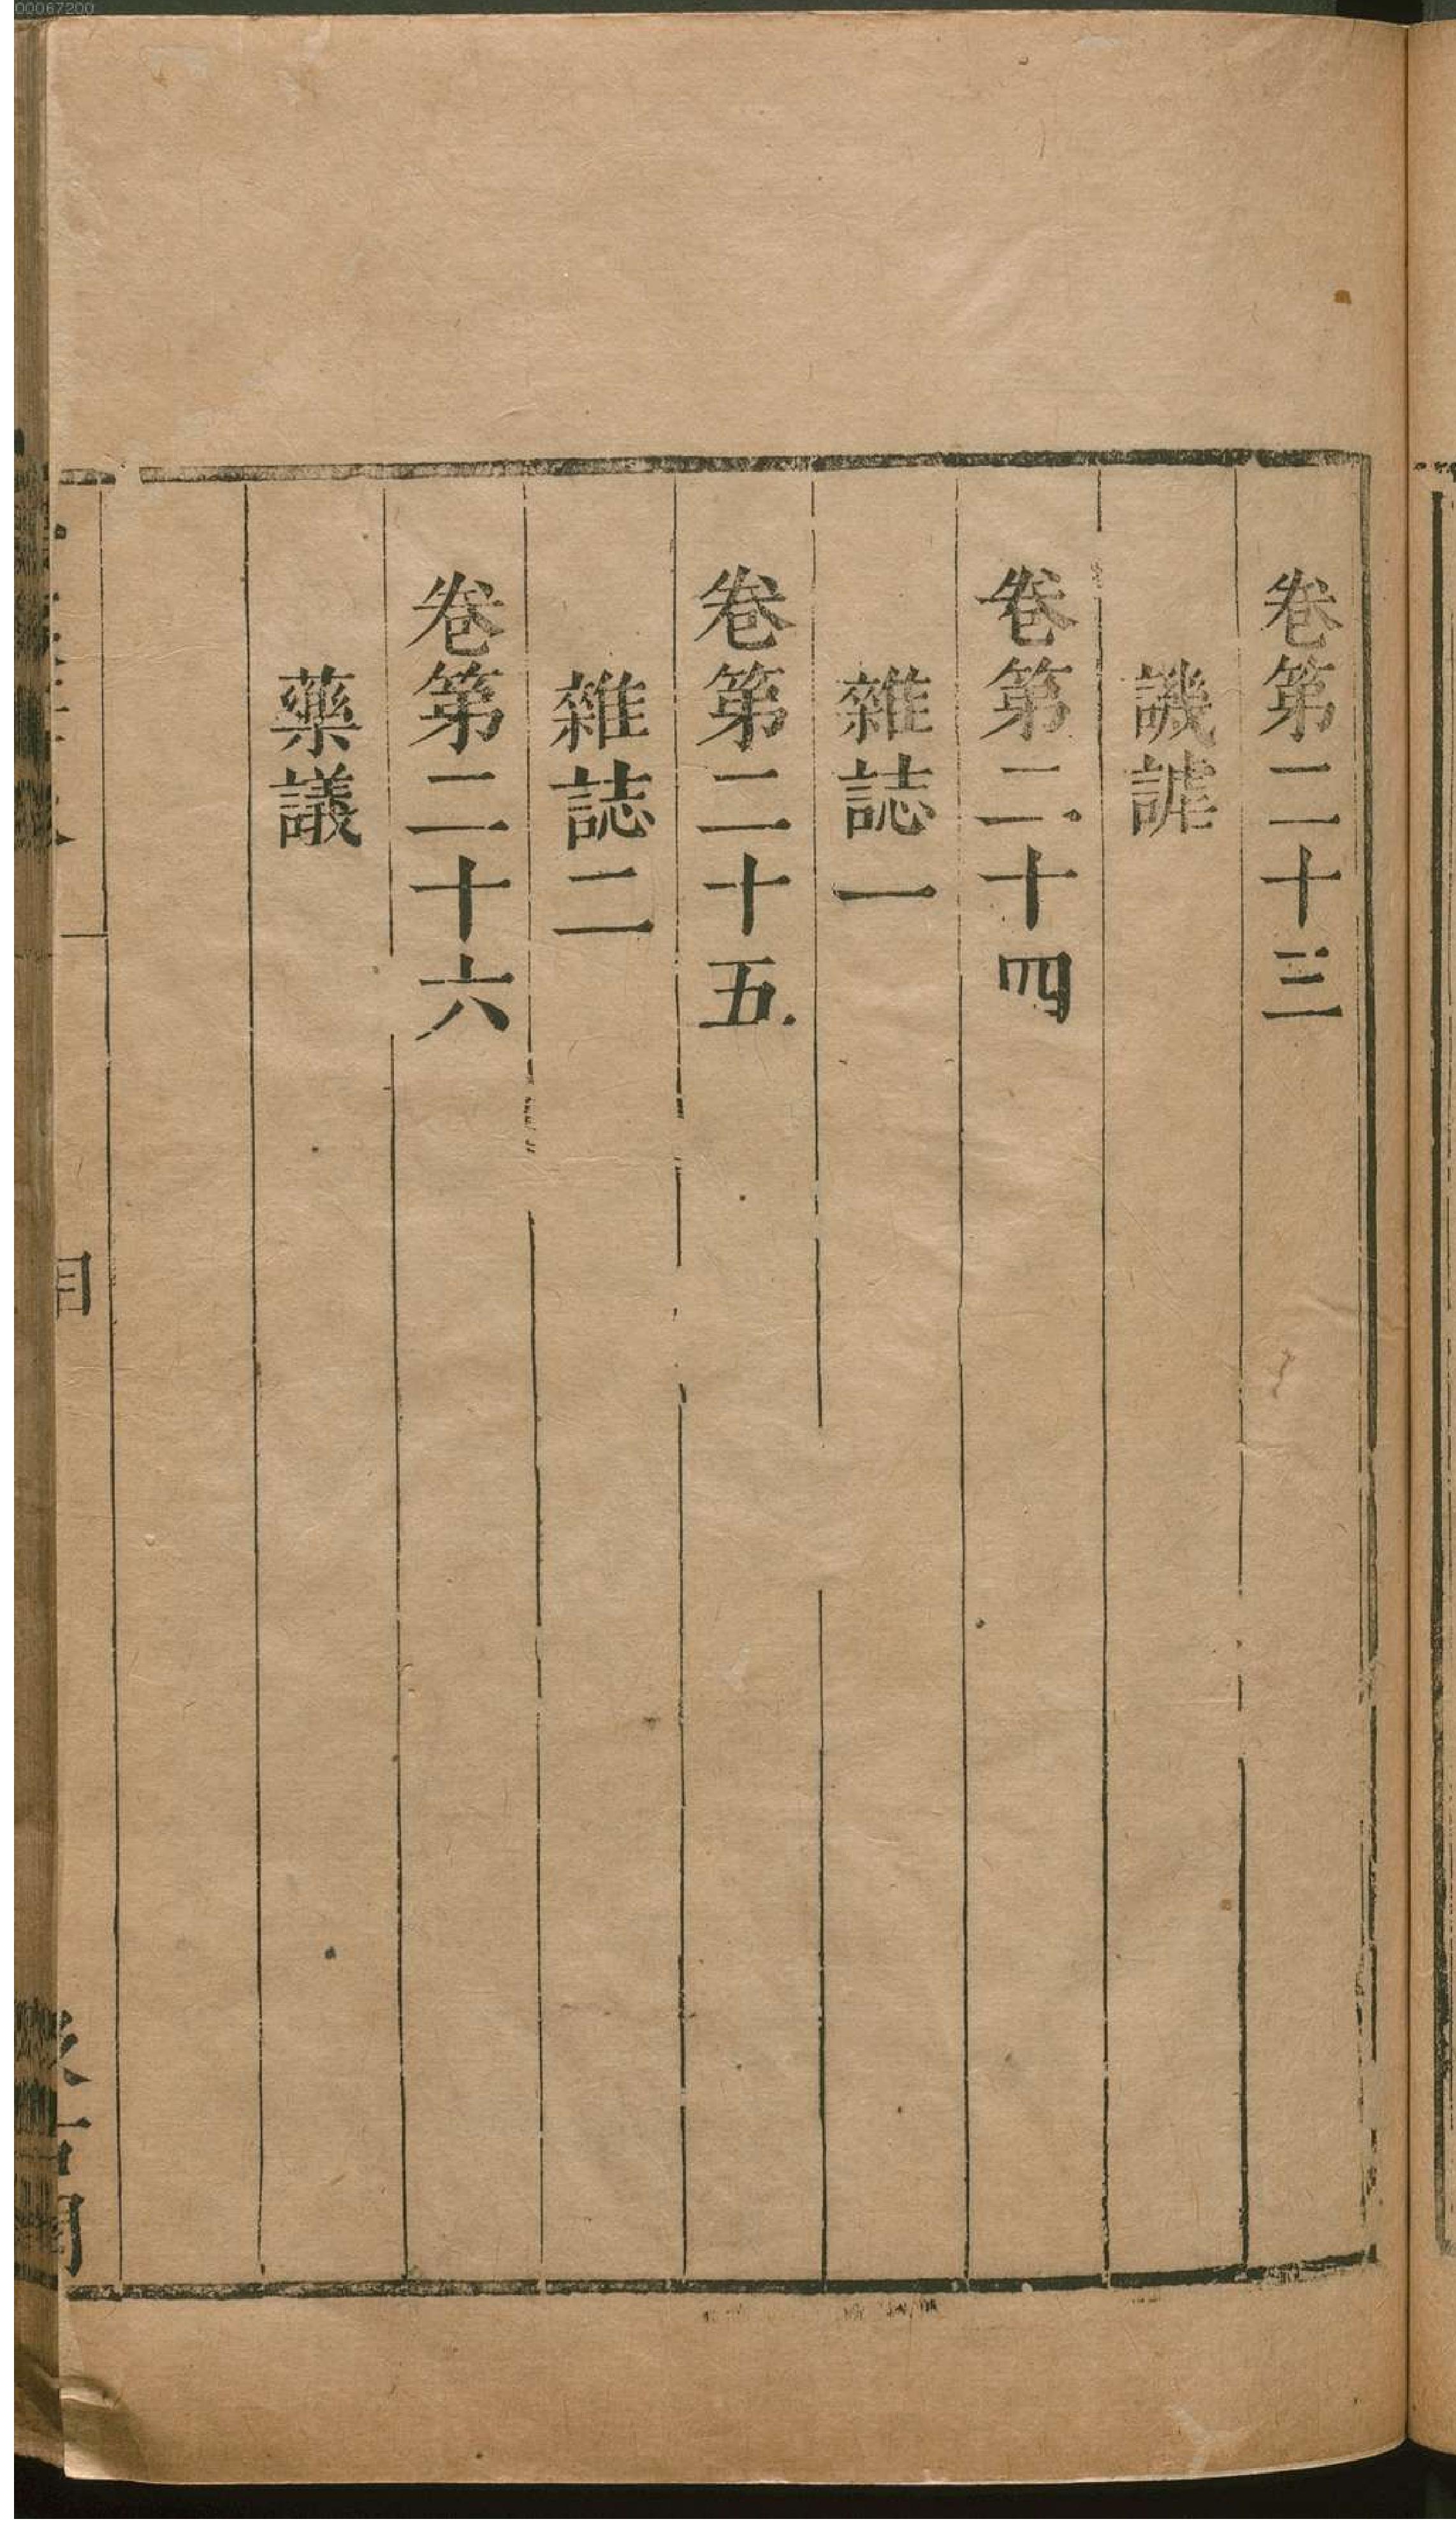 00067200
卷第二十三
譏謔
卷第二十四
雜誌一
卷第二十五
雜誌二
卷第二十六
藥議